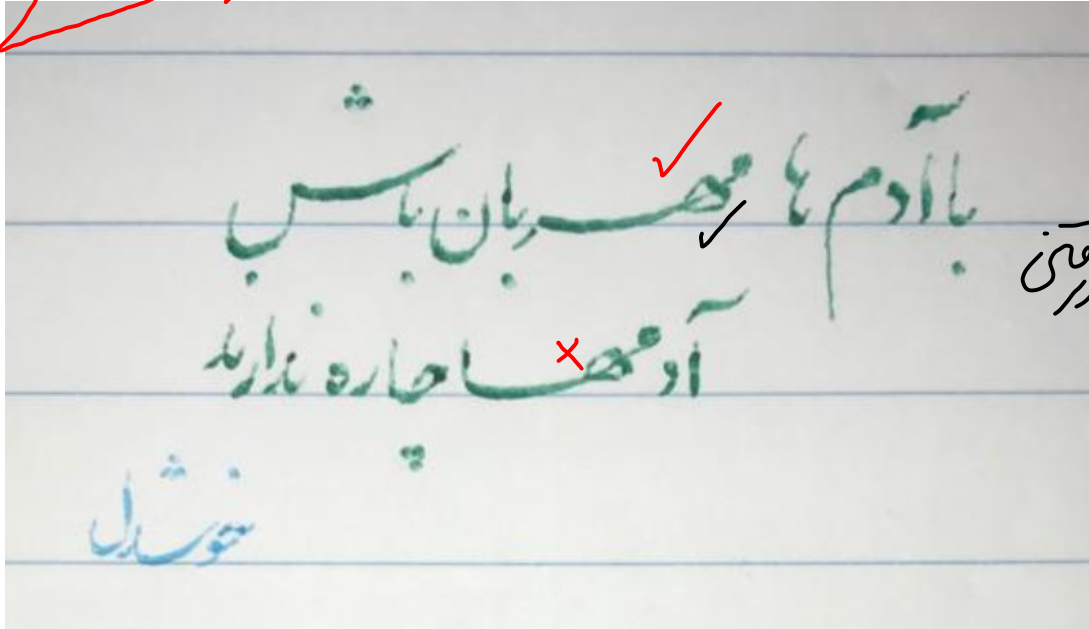 با آدم ها مهربان باش
آدمها چاره ندارند